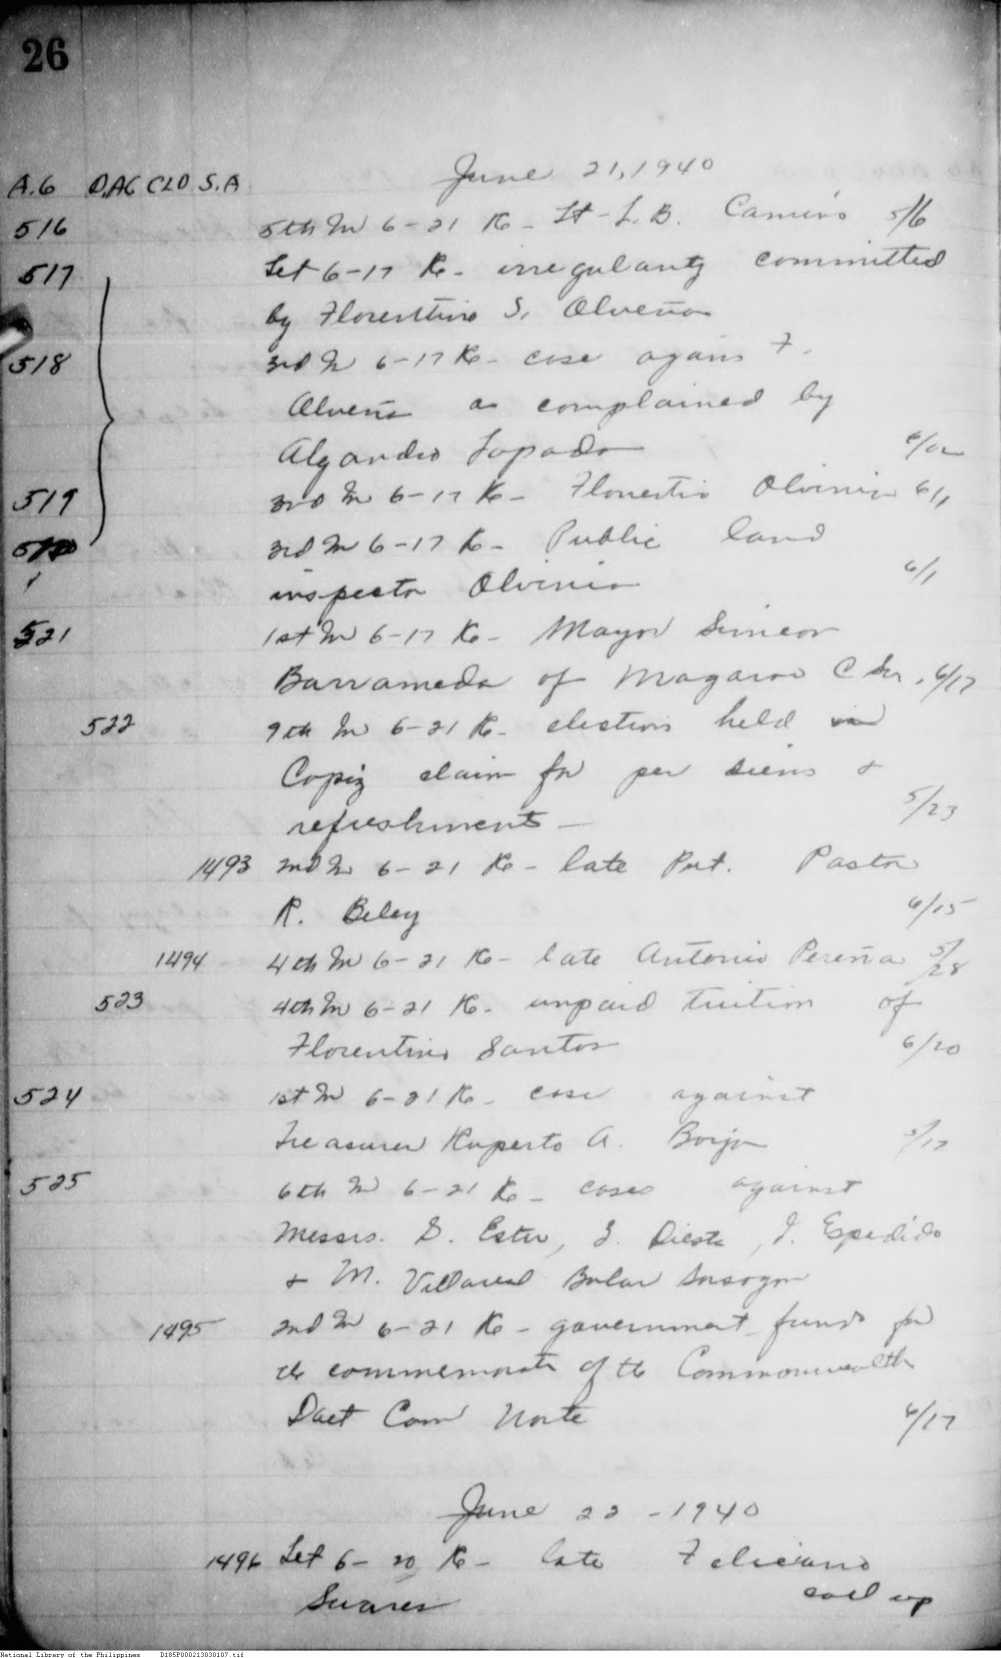 26
June 21, 1940
A.G D.AG CLD S.A
516 5th In 6-21 Re- Lt - L. B. Camins 5/6
517 Let 6-17 Re- irregularity committed
by Florentino S. Olveña
518 3rd In 6-17 Re- case agains F.
Olveña as complained by
Algandro Lopado
519 3rd In 6-17 Re- Olvinia 6/1
3rd In 6-17 Re- Public land 6/1
inspector Olvinia
521 1st In 6-17 Re- Mayor Simeon
Barrameda of Magarao C Sur, 6/17
522 9th In 6-21 Re- elections held in
Capiz claim for per diems &
refreshments - 5/23
1493 2nd In 6-21 Re- late Pvt. Pastor
R. Belay 6/15
1494 4th In 6-21 Re- late Antonio Pereña 5/28
523 4th In 6-21 Re- unpaid tuition of
Florentino Santos 6/20
524 1st In 6-21 Re- case against
Treasurer Ruperto A. Borja
525 6th In 6-21 Re- cases against
Messrs. S. Ester, Diesta, Espedido
& M. Villareal Bulan Sorsogon
1495 2nd In 6-21 Re- government funds for
the commemorate of the Commonwealth
Daet Cam Norte 6/17
June 22 - 1940
1496 Let 6-20 Re- late Feliciano
Suares call up
National Library of the Philippines D185P000213030107.tif